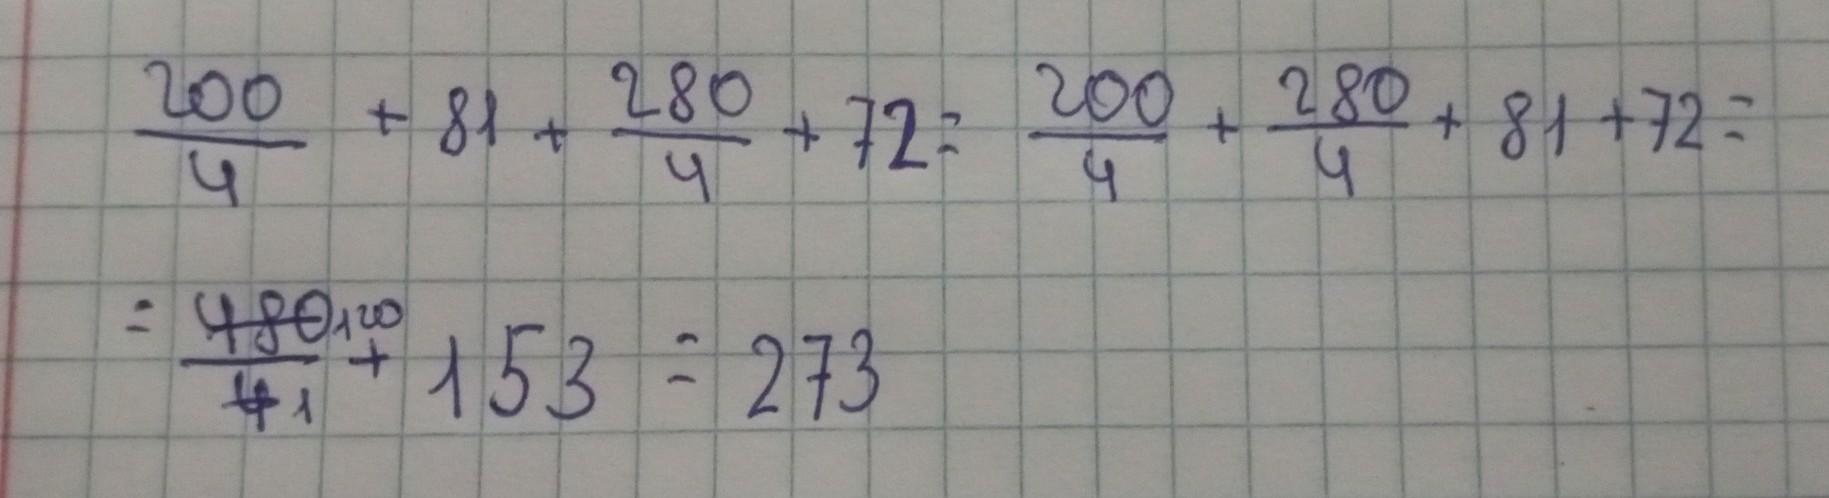 200/4 + 81 + 280/4 + 72 = 200/4 + 280/4 + 81 + 72 =
= 480 120/4 1 + 153 = 273